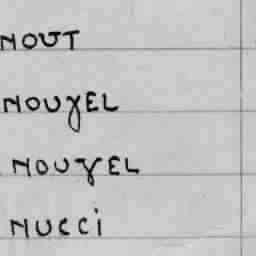 NOUT
NOUYEL
NOUYEL
NUCCi